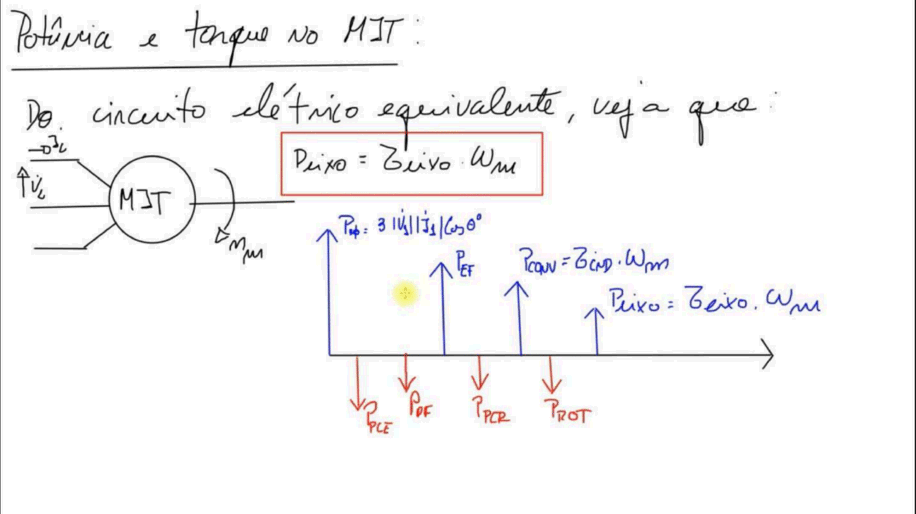 Potência e torque no MIT:
Do circuito elétrico equivalente, veja que:
İL
V̇L
MIT
nm
Peixo = τeixo · ωm
P3φ = 3|V̇1||İ1|cos θ°
PEF
PCONV = τIND · ωm
Peixo = τeixo · ωm
PPCE
PPCR
PROT